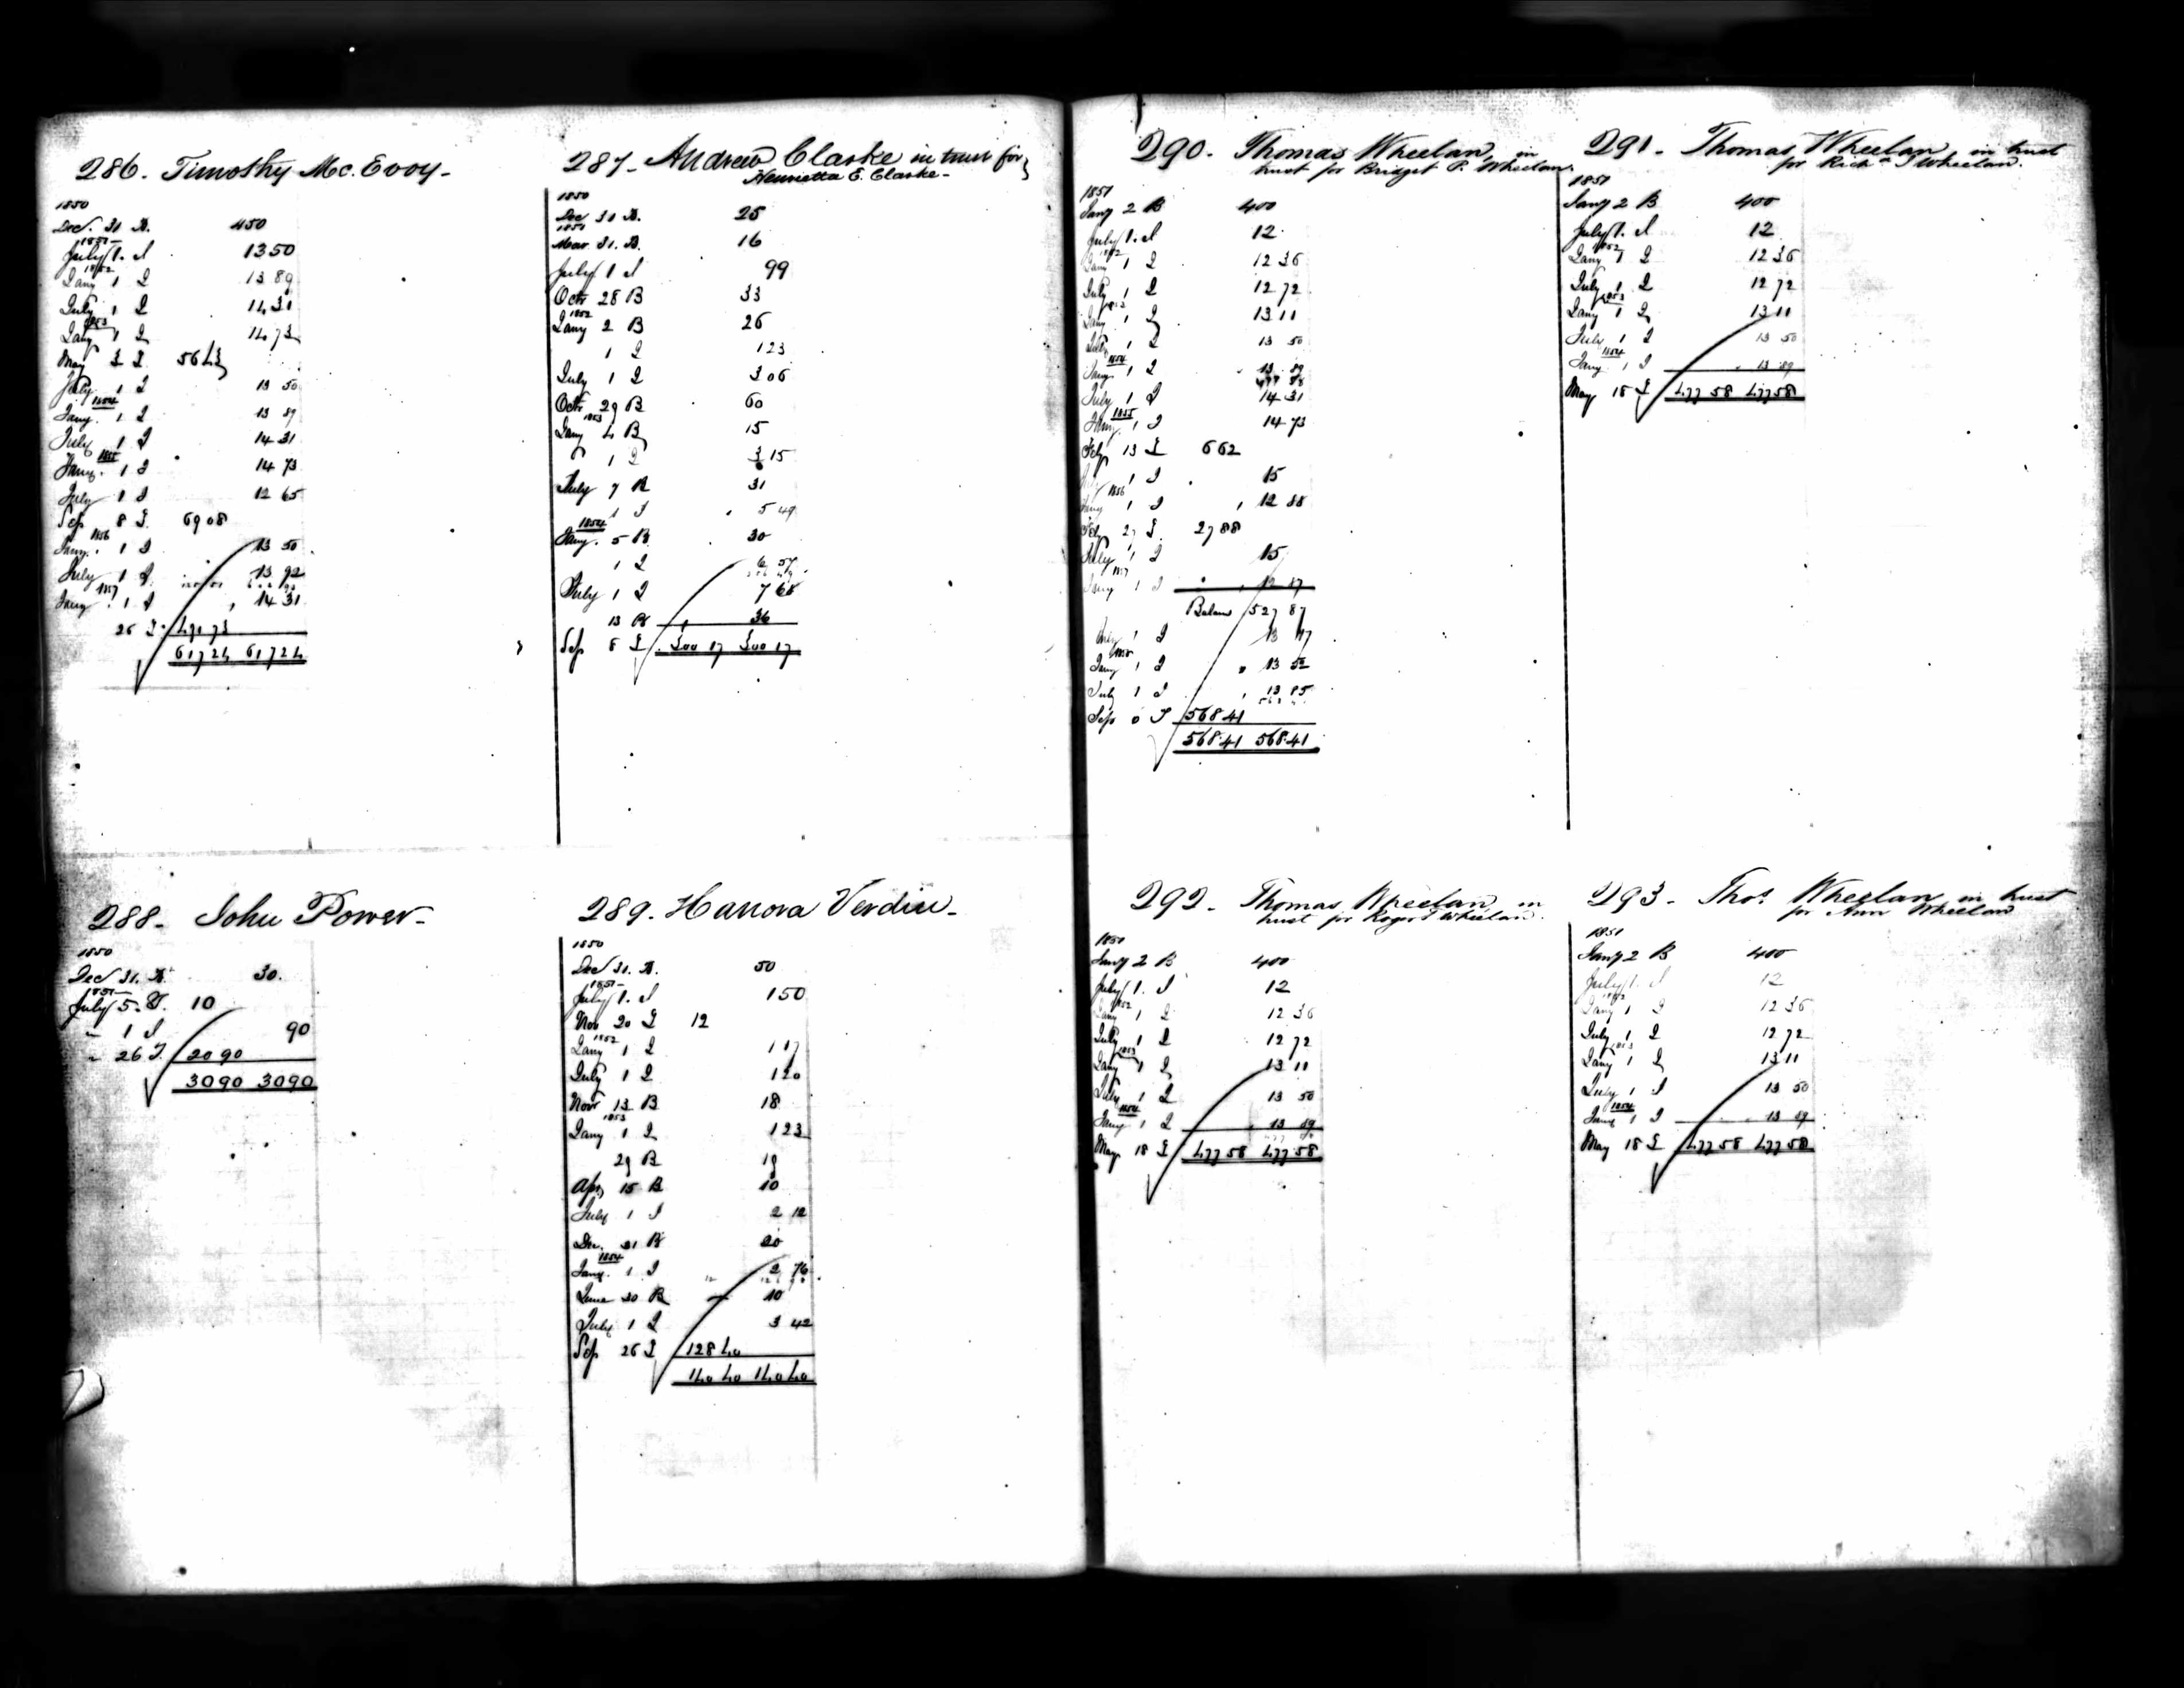 286. Timothy Mc.Evoy-
1850
Dec. 31 B. 450
1851
July 1. I 13 50
1852
Jany 1 I 13 89
July 1 I 14 31
1853
Jany 1 I 14 73
May 56 43
July 1 I 13 50
1854
Jany. 1 I 13 89
July 1 I 14 31
1855
Jany. 1 I 14 73
July 1 I 12 65
Sep 8 69 08
1856
Jany. 1 I 13 50
July 1 I 13 92
1857
Jany. 1 I 14 31
26 491 73
617 24 617 24
287- Andrew Clarke in trust for
Henrietta E. Clarke-
1850
Dec 31 B. 25
1851
Mar 31. B. 16
July 1 I 99
Octr 28 B 33
1852
Jany 2 B 26
1 I 1 23
July 1 I 3 06
Octr 29 B 60
1853
Jany 4 B 15
1 I 3 15
July 7 B 31
1 I 5 49
1854
Jany. 5 B. 30
1 I 6 57
July 1 I 7 65
13 B 36
Sep 8 300 17 300 17
288- John Power-
1850
Dec 31. B. 30.
1851
July 5. 10
" 1 I 90
" 26 20 90
30 90 30 90
289. Hanora Verdin-
1850
Dec 31. B. 50
1851
July 1. I 1 50
Nov 20 12
1852
Jany 1 I 1 17
July 1 I 1 20
Novr 13 B 18
1853
Jany 1 I 1 23
29 B 19
Apr 15 B 10
July 1 I 2 12
Dec. 31 B 20
1854
Jany. 1 I 2 76
June 30 B 10
July 1 I 3 42
Sep 26 128 40
140 40 140 40
290. Thomas Wheelan, in
trust for Bridget P. Wheelan.
1851
Jany 2 B 400
July 1. I 12
1852
Jany 1 I 12 36
July 1 I 12 72
1853
Jany 1 I 13 11
July 1 I 13 50
1854
Jany. 1 I 13 89
July 1 I 14 31
1855
Jany. 1 I 14 73
Feb 13 6 62
July 1 I 15
1856
Jany 1 I 12 88
Feb 27 27 88
July 1 I 15
1857
Jany 1 I
Balance 527 87
July 1 I
1858
Jany 1 I 13 52
July 1 I 13 95
Sep 568 41
568 41 568 41
291- Thomas Wheelan, in trust
for Richd Wheelan.
1851
Jany 2 B 400
July 1. I 12
1852
Jany 1 I 12 36
July 1 I 12 72
1853
Jany 1 I 13 11
July 1 I 13 50
1854
Jany. 1 I 13 89
May 18 477 58 477 58
292- Thomas Wheelan, in
trust for Roger Wheelan.
1851
Jany 2 B 400
July 1. I 12
1852
Jany 1 I 12 36
July 1 I 12 72
1853
Jany 1 I 13 11
July 1 I 13 50
1854
Jany 1 I 13 89
May 18 477 58 477 58
293- Thos Wheelan, in trust
for Ann Wheelan
1851
Jany 2 B 400
July 1. I 12
1852
Jany 1 I 12 36
July 1 I 12 72
1853
Jany 1 I 13 11
July 1 I 13 50
1854
Jany 1 I 13 89
May 18 477 58 477 58